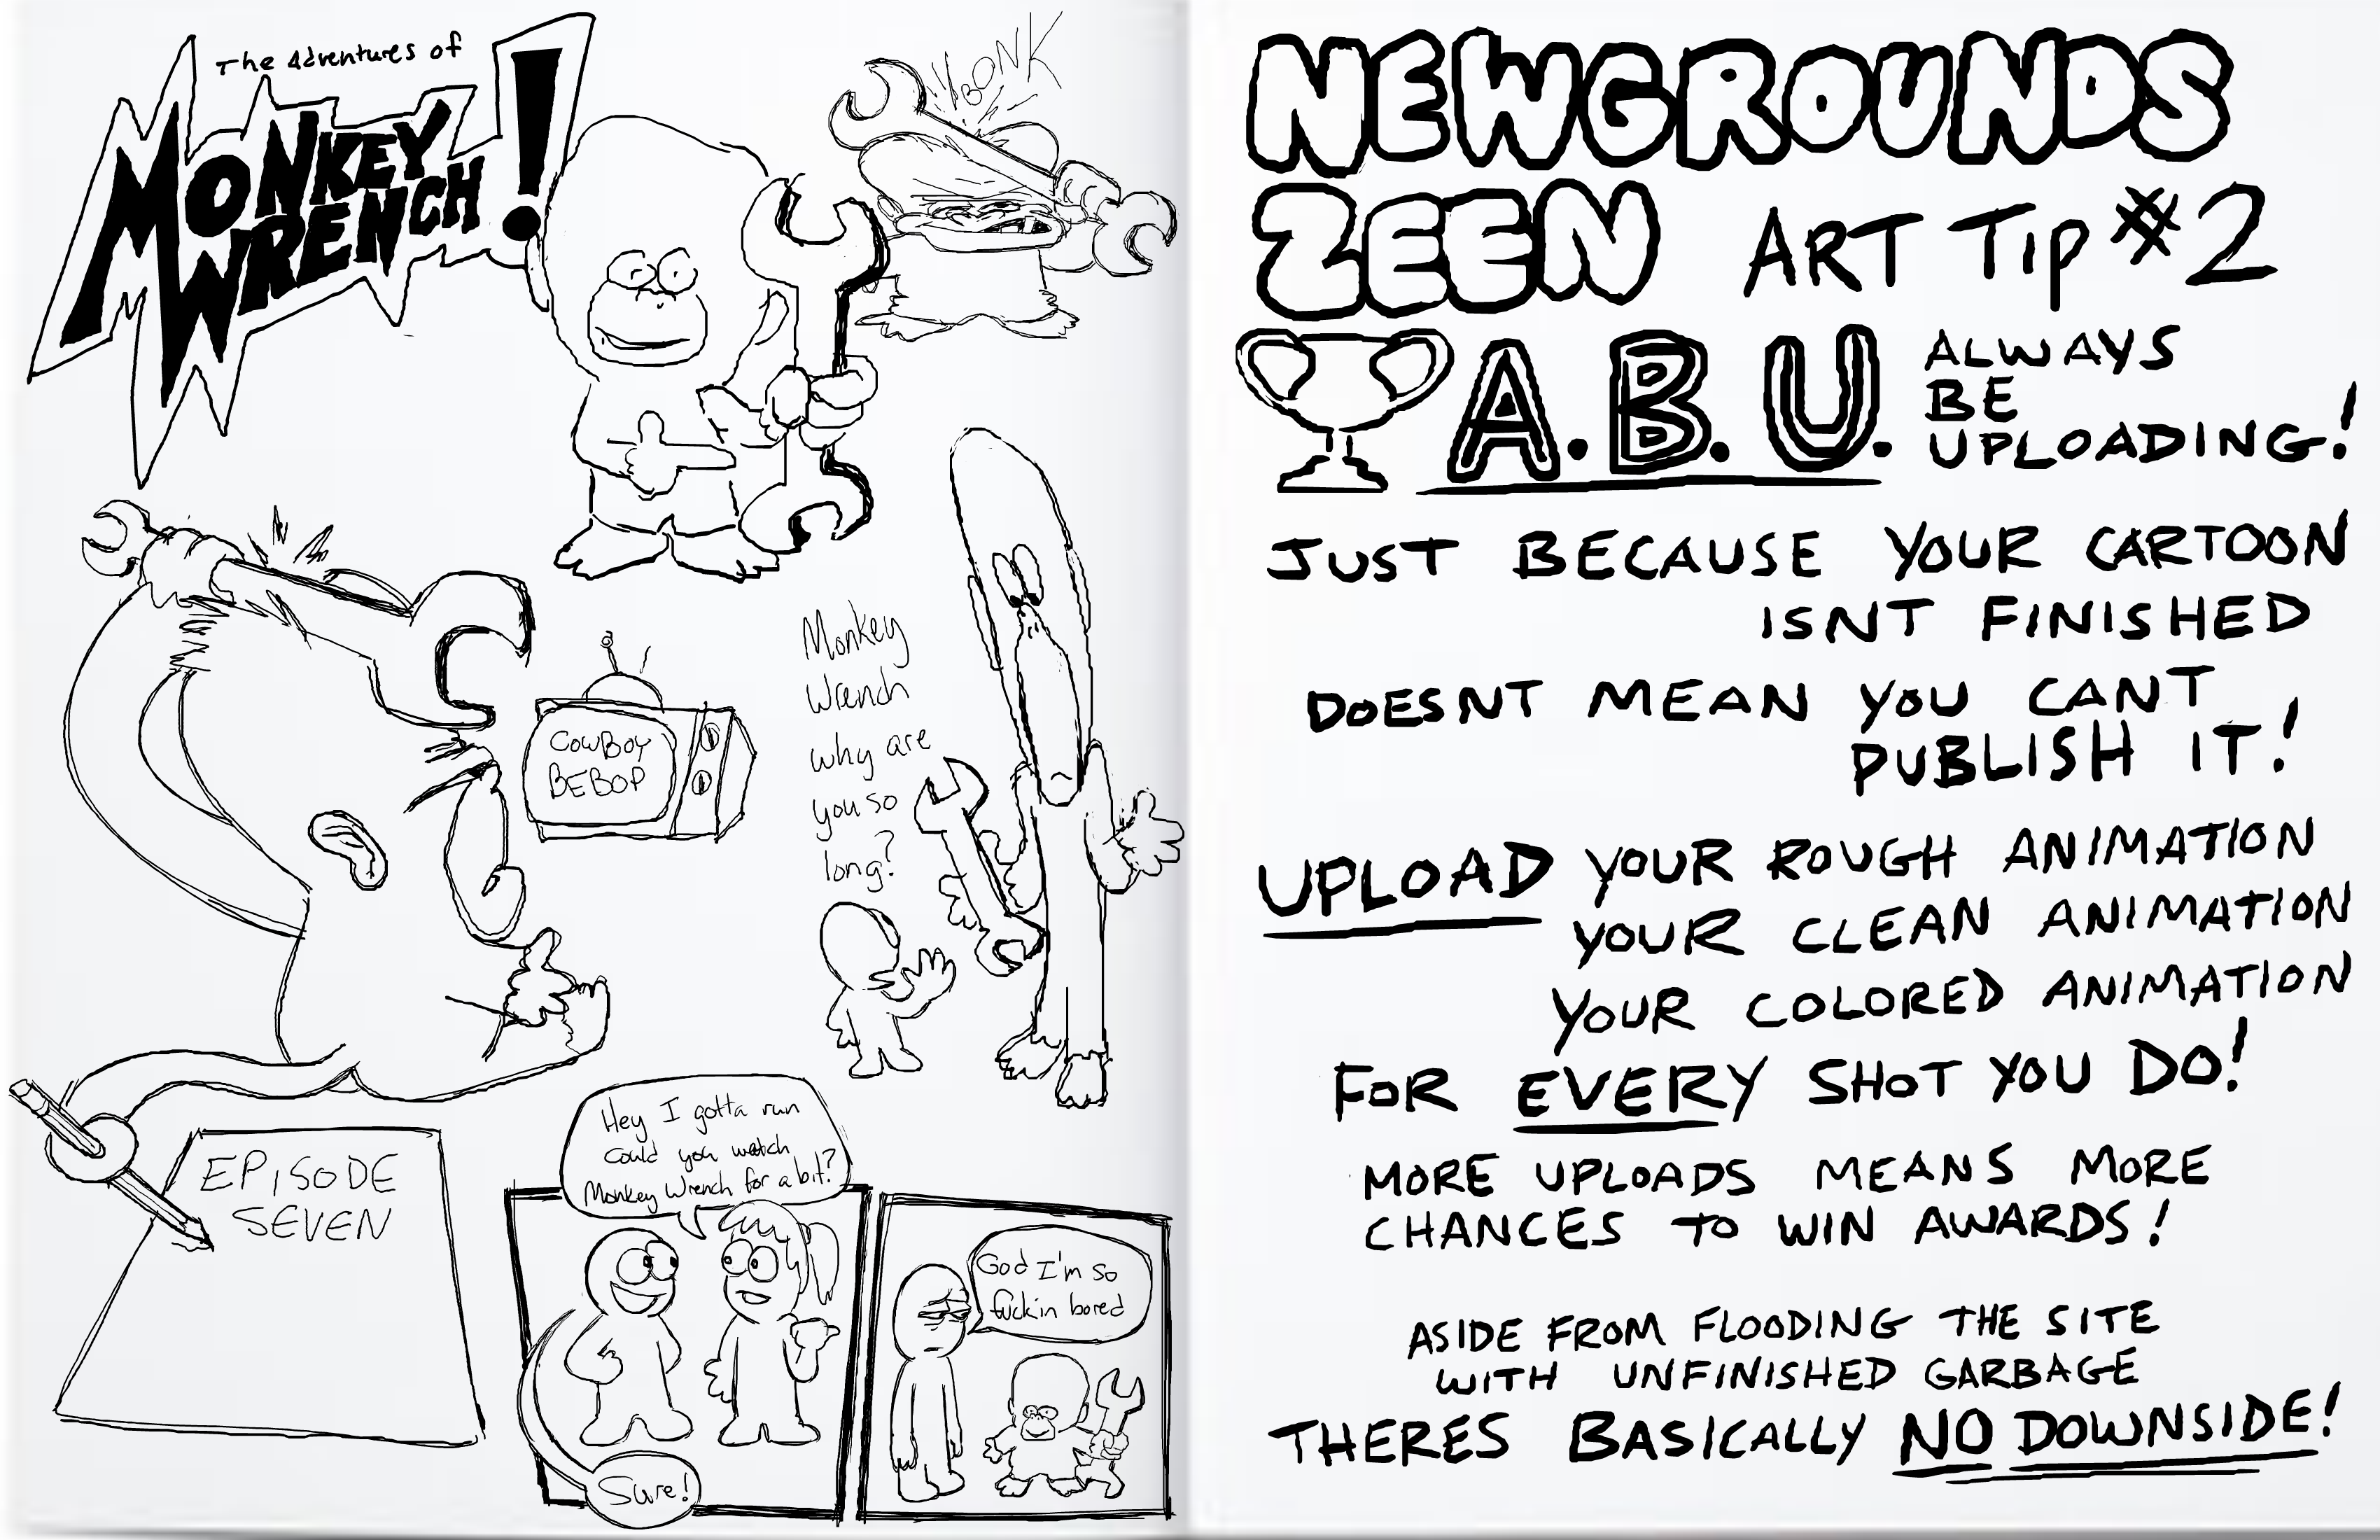 The Adventures of
MONKEY
WRENCH!
BONK
Monkey
Wrench
why are
you so
long?
COWBOY
BEBOP
EPISODE
SEVEN
Hey I gotta run
could you watch
Monkey Wrench for a bit?
Sure!
God I'm so
fuckin bored
NEWGROUNDS
ZEEN ART TIP #2
A.B.U. ALWAYS
BE
UPLOADING!
JUST BECAUSE YOUR CARTOON
ISNT FINISHED
DOESNT MEAN YOU CANT
PUBLISH IT!
UPLOAD YOUR ROUGH ANIMATION
YOUR CLEAN ANIMATION
YOUR COLORED ANIMATION
FOR EVERY SHOT YOU DO!
MORE UPLOADS MEANS MORE
CHANCES TO WIN AWARDS!
ASIDE FROM FLOODING THE SITE
WITH UNFINISHED GARBAGE
THERES BASICALLY NO DOWNSIDE!